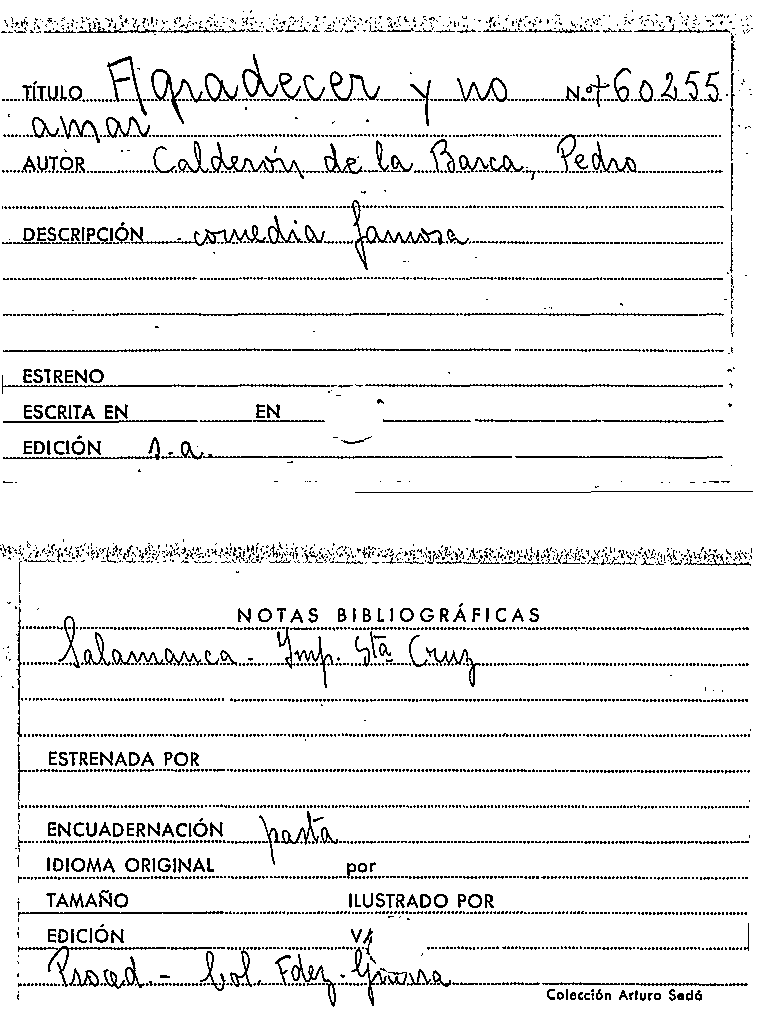 TÍTULO Agradecer y no N.º +60255
amar
AUTOR Calderón de la Barca, Pedro
DESCRIPCIÓN comedia famosa
ESTRENO
ESCRITA EN EN
EDICIÓN s.a.
NOTAS BIBLIOGRÁFICAS
Salamanca - Imp. Sta Cruz
ESTRENADA POR
ENCUADERNACIÓN pasta
IDIOMA ORIGINAL por
TAMAÑO ILUSTRADO POR
EDICIÓN
Proced. - Col. Fdez-Guerra
Colección Arturo Sedó